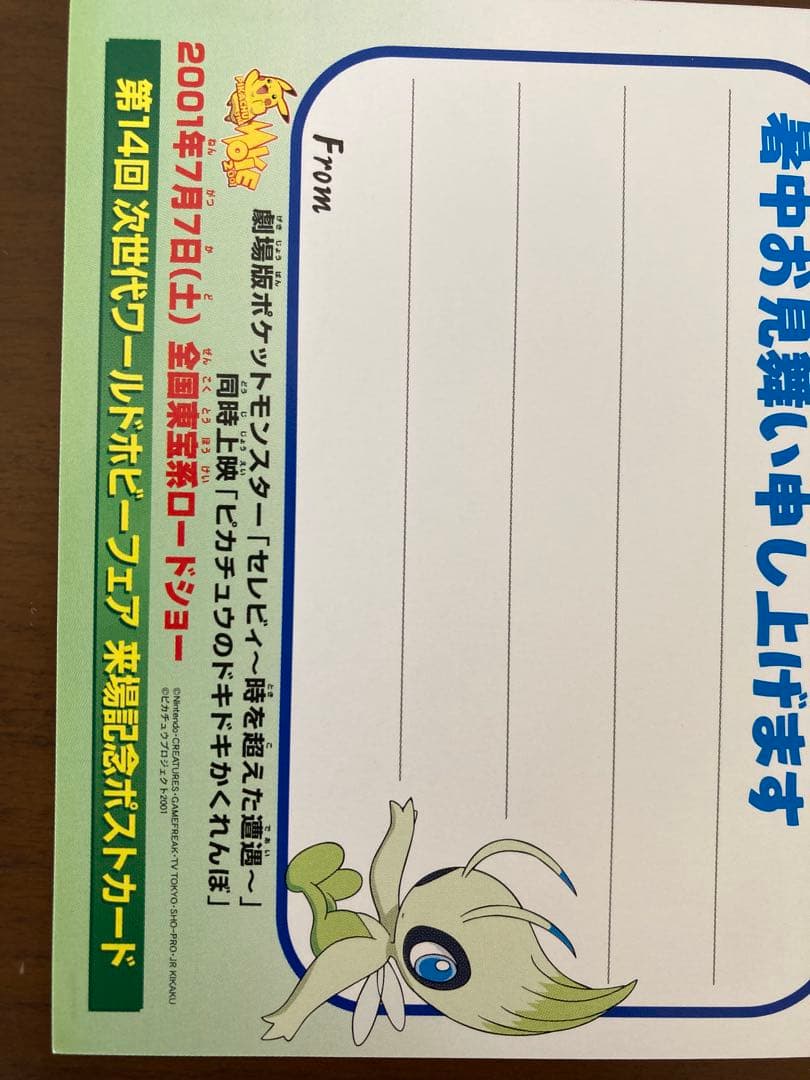 暑中お見舞い申し上げます
From
PIKACHU
MOVIE
2001
劇場版ポケットモンスター「セレビィ～時を超えた遭遇～」
同時上映「ピカチュウのドキドキかくれんぼ」
2001年7月7日(土) 全国東宝系ロードショー
©Nintendo・CREATURES・GAMEFREAK・TV TOKYO・SHO-PRO・JR KIKAKU
©ピカチュウプロジェクト2001
第14回 次世代ワールドホビーフェア 来場記念ポストカード